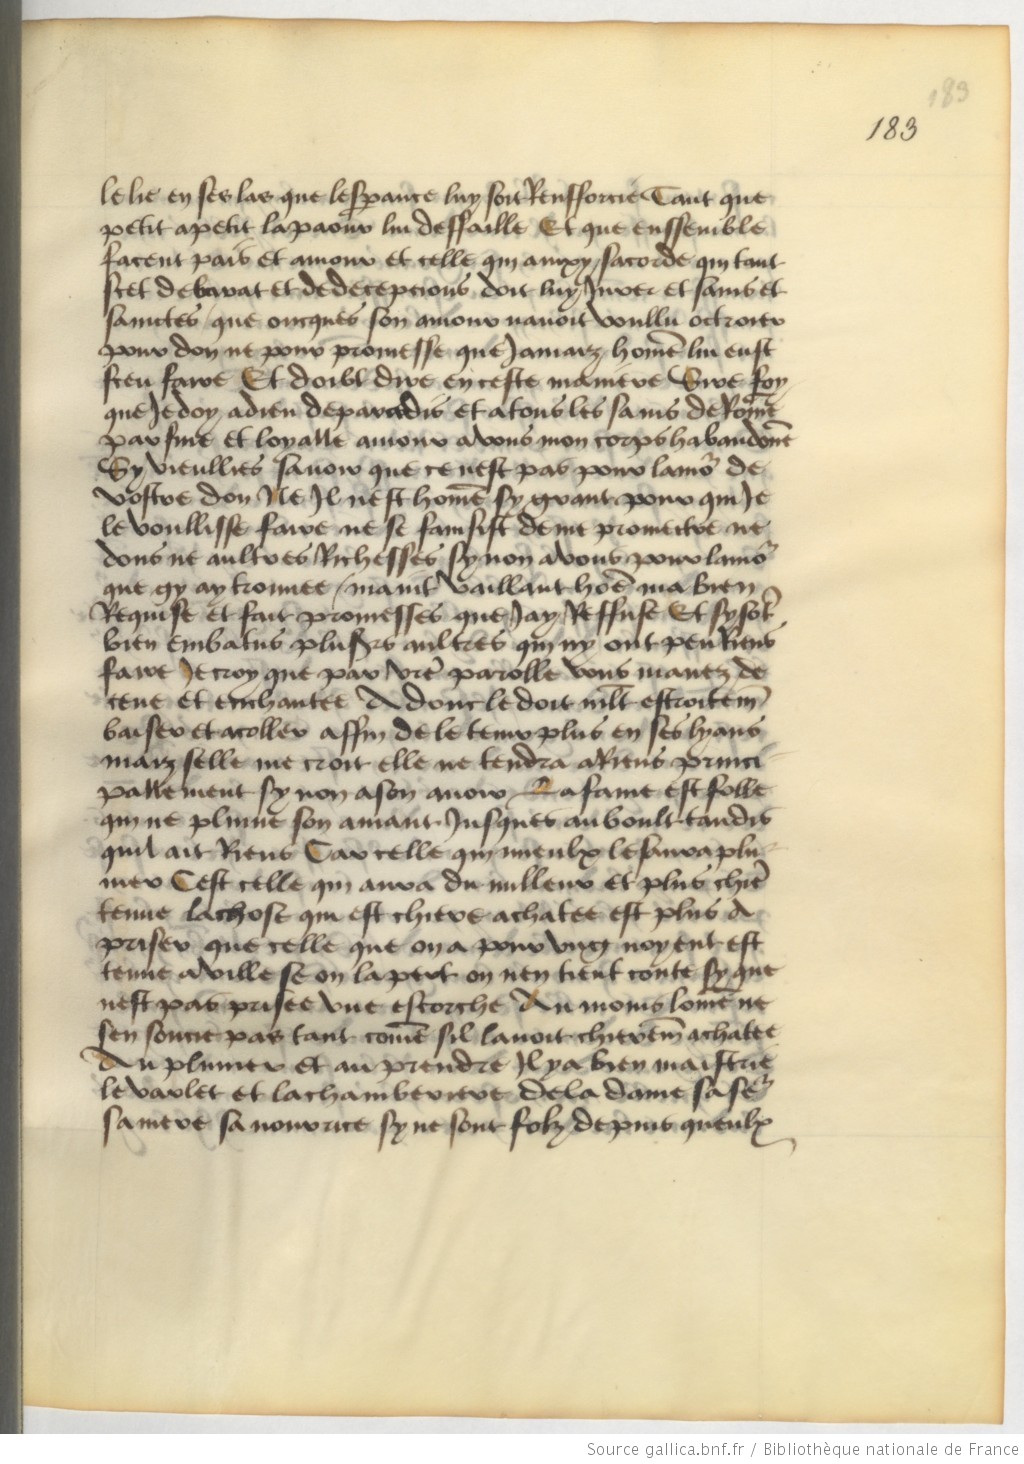 183
183
le lie en ses las que lesperance luy soit Renfforcie Tant que
petit apetit la paour lui deffaille Et que enssemble
facent pais et amour et celle qui amxy sacorde qui tant
scet de barat et de decepcions doit luy Jurer et sains et
sainctes que oncques son amour nauoit voullu octroier
pour don ne pour promesse que Jamaiz home lui eust
sceu faire Et doibt dire en ceste maniere Sire foy
que Je doy adieu de paradis et a tous les sains de Rome
par fine et loyalle amour a vous mon corps habandone
Sy vieullies sauoir que ce nest pas pour lamor de
vostre don Ne Il nest home sy grant pour qui Je
le voullisse faire ne se fainsist de me promectre ne
dons ne aultres Richesses sy non a vous pour lamor
que gy ay trouuee maint vaillant hoe ma bien
Requise et fait promesses que Jay Reffuse Et sy sot
bien embatus plusrs aultres qui ny ont peu Riens
faire Je croy que par vre parolle vous mauez de
ceue et enchantee Adonc le doit mlt estroitem
baiser et acoller affin de le tenir plus en ses lyans
maiz selle me croit elle ne tendra a Riens princi
pallement sy non a son auoir La fame est folle
qui ne plume son amant Jusques au boult tandis
quil ait Riens Car celle qui mieulx le saura plu
mer Cest celle qui aura du milleur et plus chie
tenue la chose qui est chiere achatee est plus A
priser que celle que on a pour ung noyent est
tenue a ville se on la pert on nen tient conte sy que
nest pas prisee vne escorche Au moins lome ne
sen soucie pas tant come sil lauoit chierem achatee
Au plumer et au prendre Il ya bien maistrie
le varlet et la chamberiere de la dame sa ser
sa mere sa nourrice sy ne sont folz depuis queulx
Source gallica.bnf.fr / Bibliothèque nationale de France